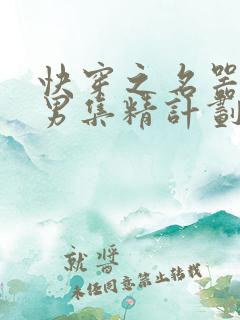 快穿之名器
男集精計劃
就醬
未经同意禁止转载